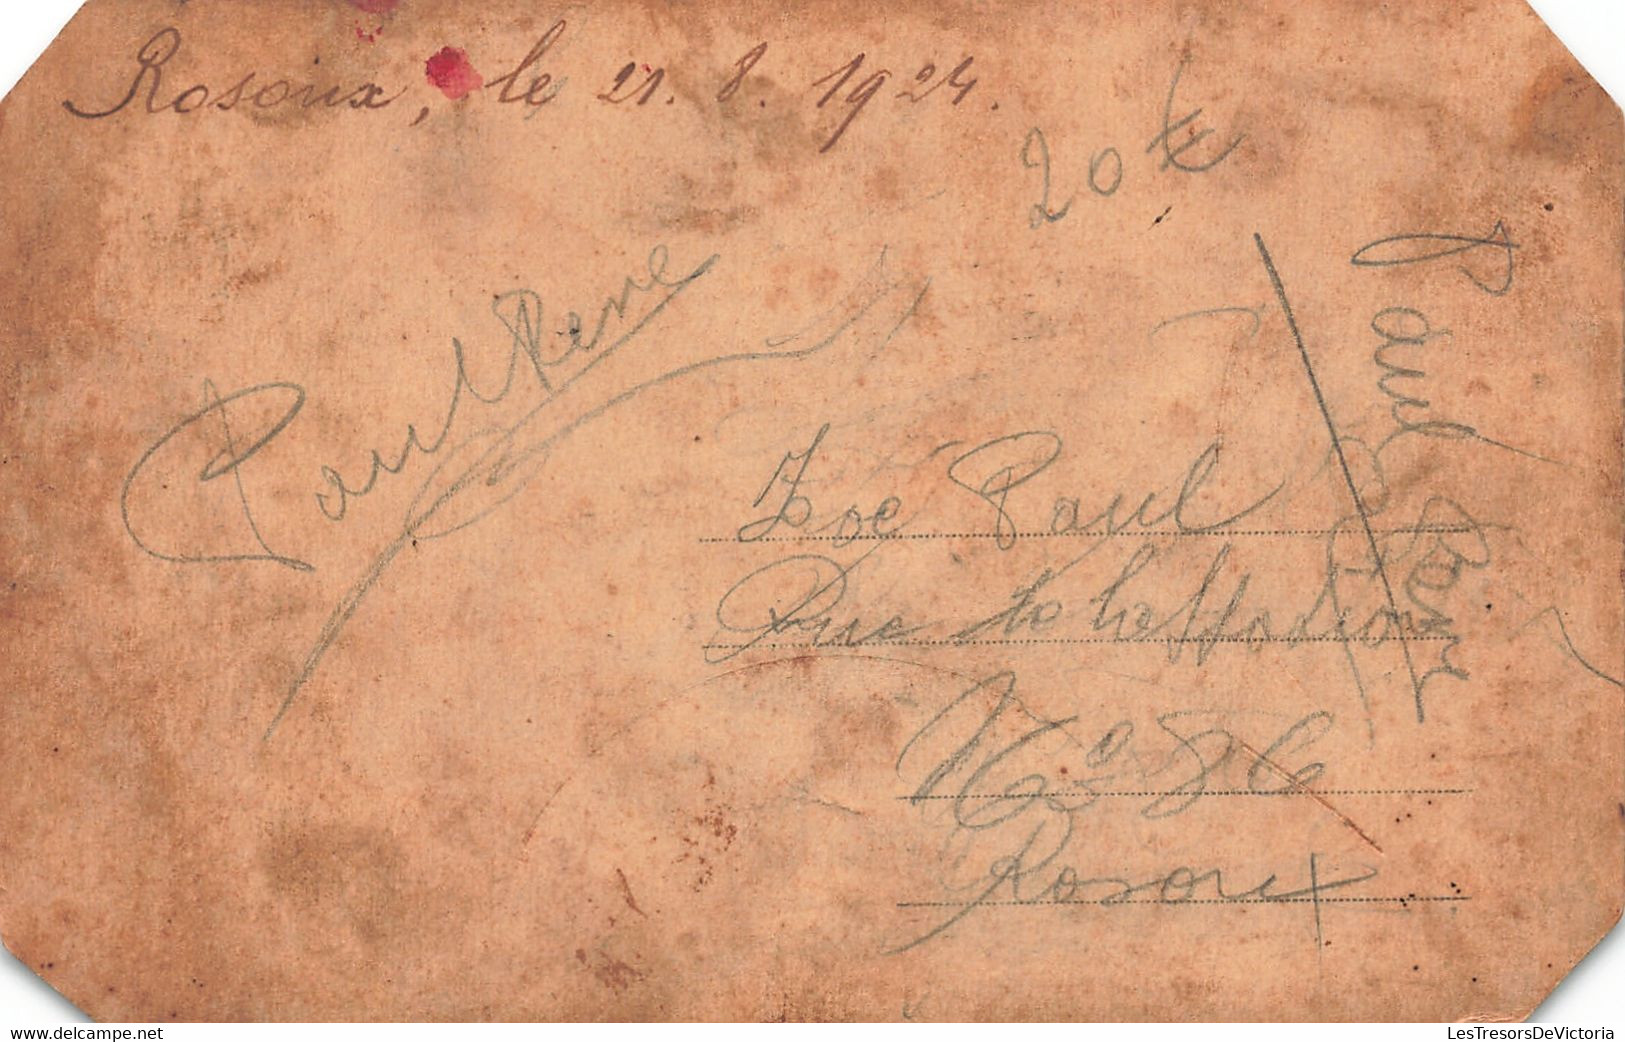 Rosoux, le 21. 8. 1924.
20 k
Paul René
Paul
Zoé Paul
Rue
N°
Rosoux
delcampe.net
LesTresorsDeVictoria